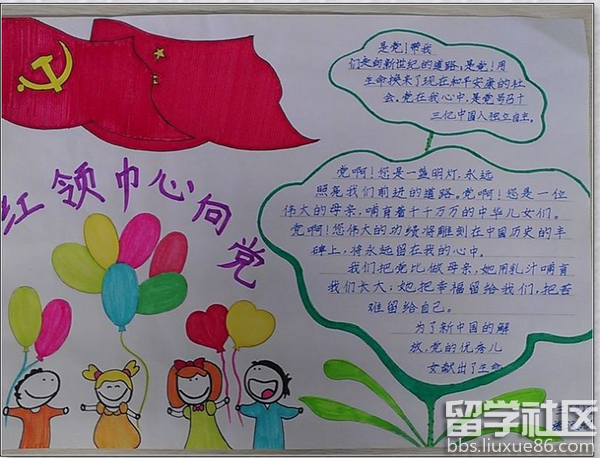 红领巾心向党
是党！帮我
们走向新世纪的道路，是党！用
生命换来了现在和平安康的社
会。党在我心中，是党号召十
三忆中国人独立自主。
党啊！您是一盏明灯，永远
照亮我们前进的道路。党啊！您是一位
伟大的母亲，哺育着千千万万的中华儿女们。
党啊！您伟大的功绩将雕刻在中国历史的丰
碑上，将永远留在我的心中。
我们把党比做母亲，她用乳汁哺育
我们长大；她把幸福留给我们，把苦
难留给自己。
为了新中国的解
放，党的优秀儿
女献出了生命
留学社区
bbs.liuxue86.com